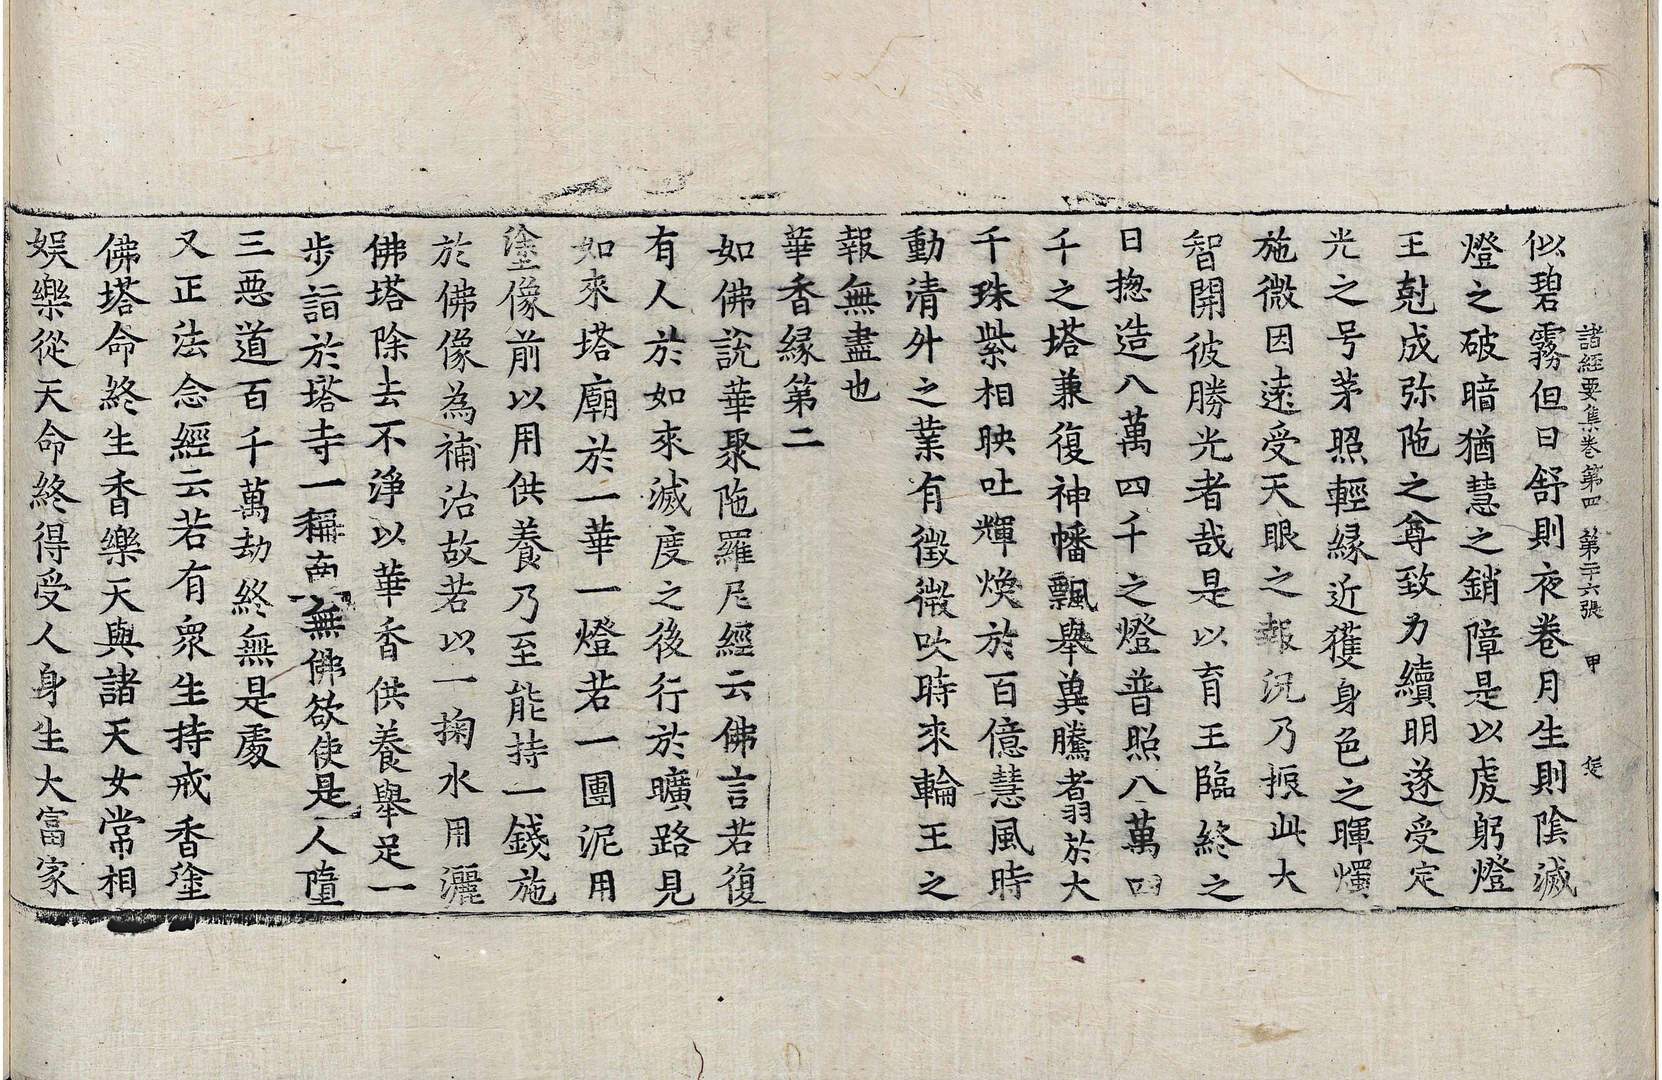 諸經要集卷第四 第二十六張 甲
似碧霧但日舒則夜卷月生則陰滅
燈之破暗猶慧之銷障是以虔躬燈
王尅成弥陁之尊致力續明遂受定
光之号茅照輕縁近獲身色之暉燭
施微因遠受天眼之報況乃振此大
智開彼勝光者哉是以育王臨終之
日揔造八萬四千之燈普照八萬四
千之塔兼復神幡飄舉冀騰翥於大
千珠紫相映吐輝煥於百億慧風時
動清外之業有徵微吹時來輪王之
報無盡也
華香縁第二
如佛說華聚陁羅尼經云佛言若復
有人於如來滅度之後行於曠路見
如來塔廟於一華一燈若一團泥用
塗像前以用供養乃至能持一錢施
於佛像為補治故若以一掬水用灑
佛塔除去不淨以華香供養舉足一
步詣於塔寺一稱南無佛欲使是人墮
三惡道百千萬劫終無是處
又正法念經云若有衆生持戒香塗
佛塔命終生香樂天與諸天女常相
娛樂從天命終得受人身生大富家